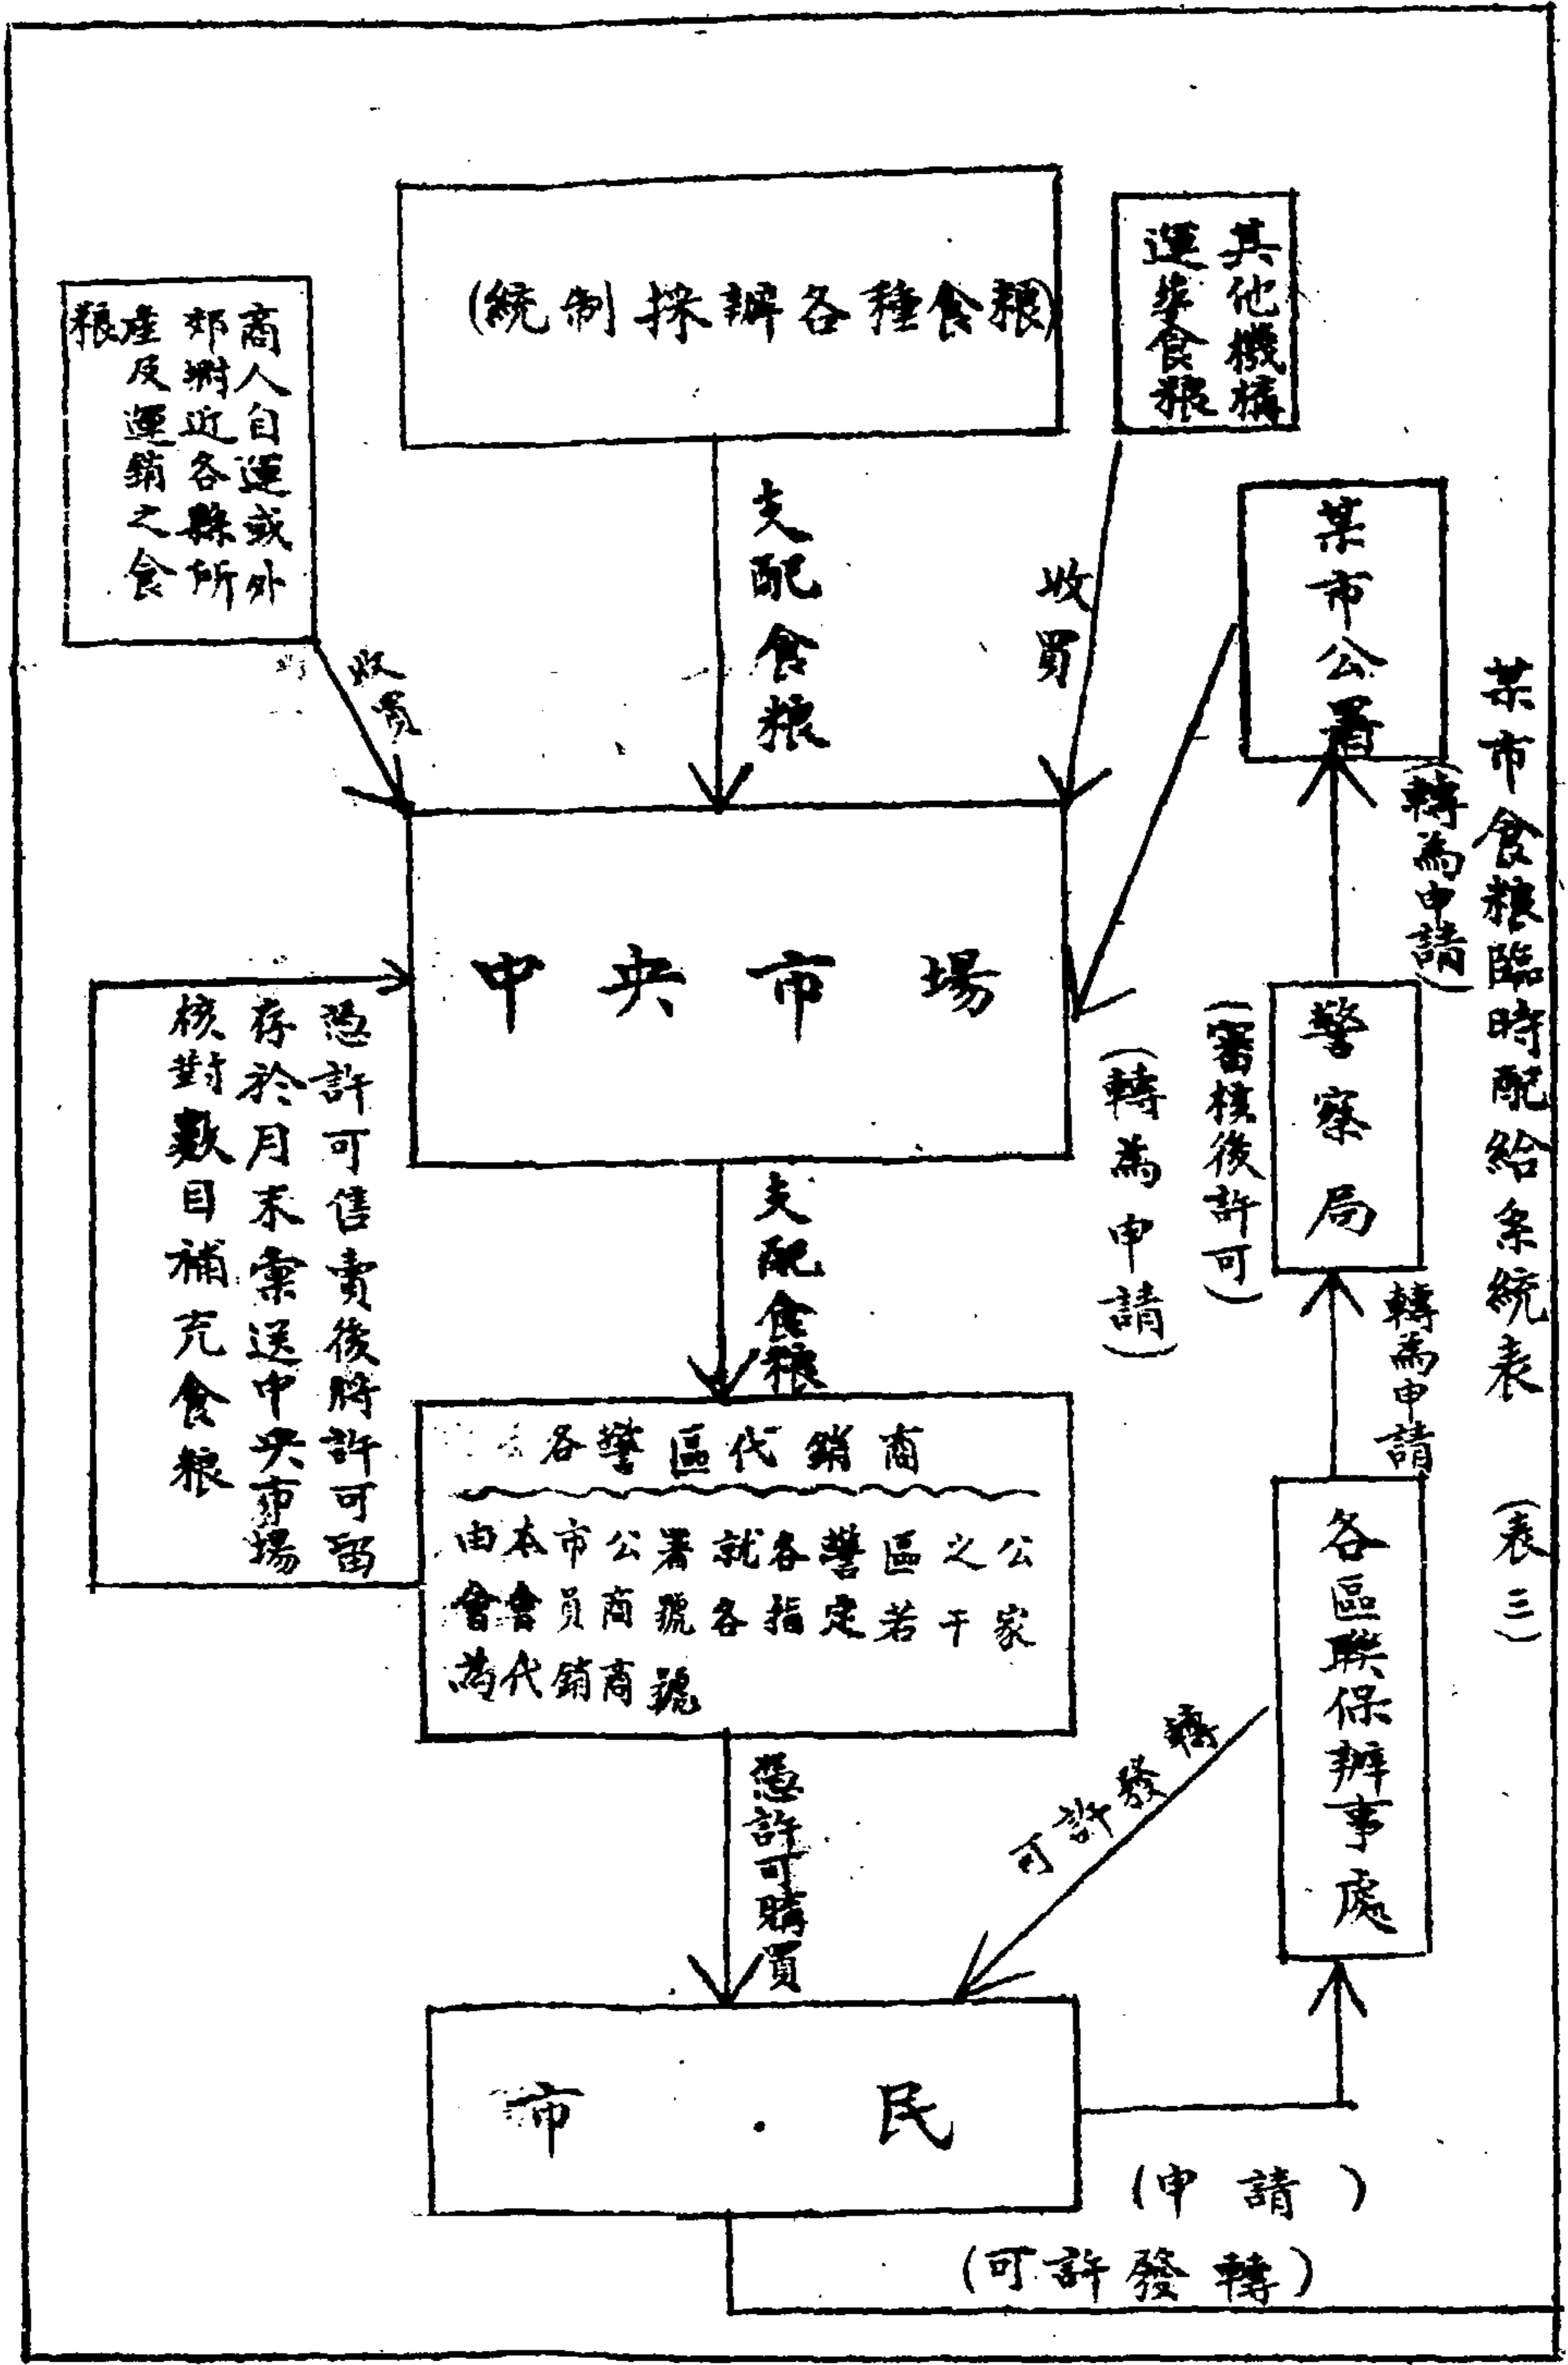 某市食糧臨時配給系統表 (表三)
其他機構
運步食糧
(統制採辦各種食糧)
商人自運或外
郊附近各縣所
產及運銷之食
糧
某市公署
支配食糧
收買
收買
(轉為申請)
中央市場
警察局
(審核後許可)
(轉為申請)
憑許可售賣後將許可留
存於月末彙送中央市場
核對數目補充食糧
支配食糧
轉為申請
各警區代銷商
由本市公署就各警區之公
會會員商號各指定若干家
為代銷商號
各區聯保辦事處
轉發許可
憑許可購買
市民
(申請)
(可許發轉)